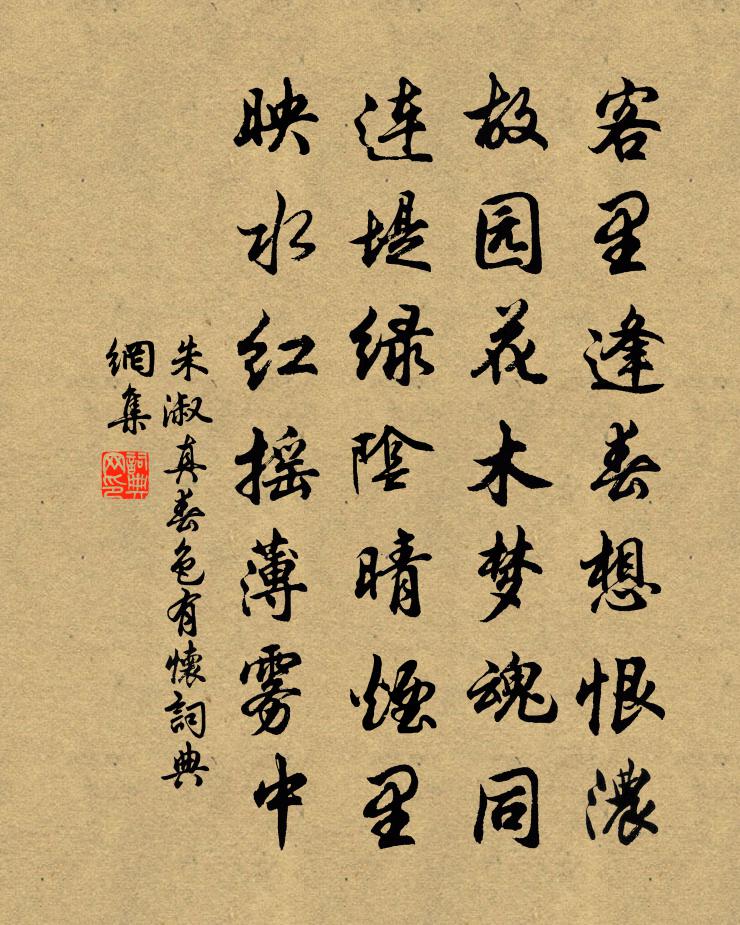 客里逢春想恨濃
故园花木梦魂同
连堤绿阴晴煙里
映水红摇薄雾中
朱淑真春色有懷詞典
網集
詞典
网印